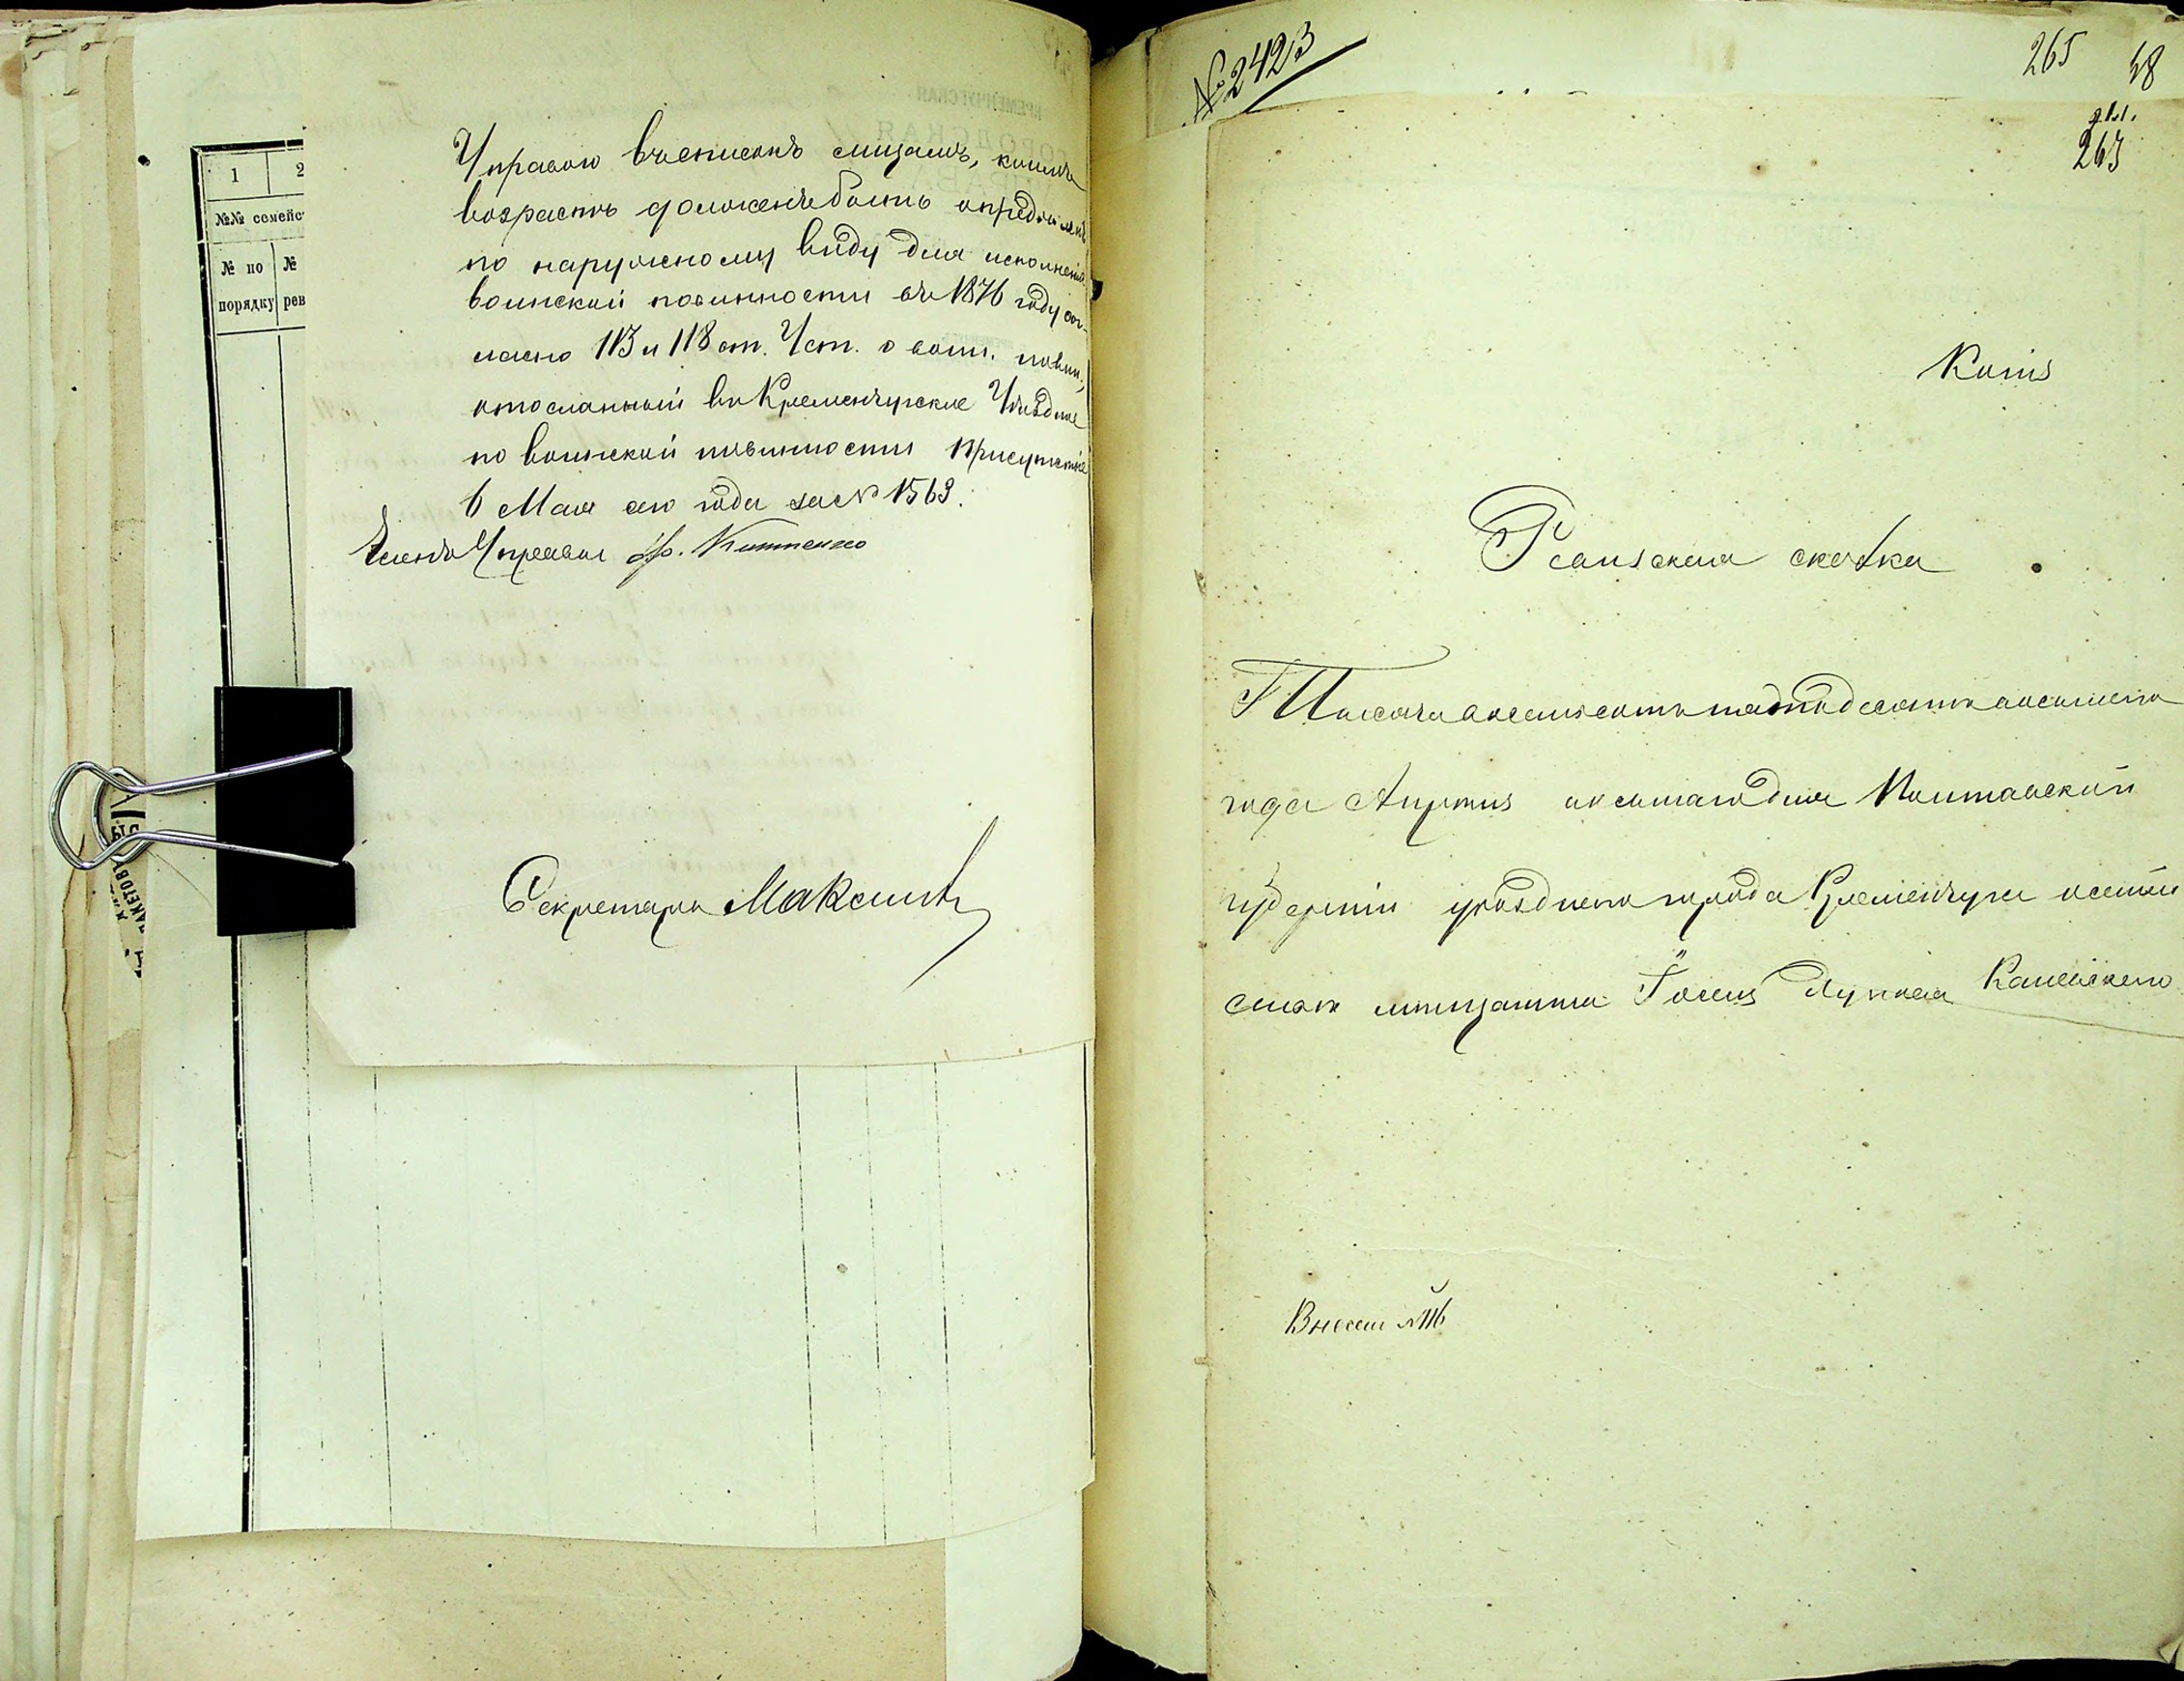 1 2
№№ семейс
№ по №
порядку рев
Управою въ списокъ лицамъ, коимъ
возрастъ долженъ быть опредѣленъ
по наружному виду для исполненія
воинской повинности въ 1876 году сог-
ласно 113 и 118 ст. Уст. о воин. повин.,
отосланный въ Кременчугское Уѣздное
по воинской повинности Присутствіе
6 Мая сего года за № 1563.
Членъ Управы
Секретарь
№ 2423
265 48
263
Копія
Ревизская сказка
Тысяча восемьсотъ пятьдесятъ восьмого
года Апрѣля дня Полтавской
губерніи уѣзднаго города Кременчуга о состоя
мѣщанина Каневскаго
Внесен № 116